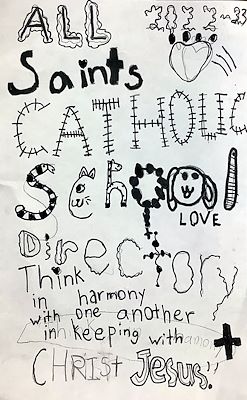 ALL 2022-23
Saints
CATHOLIC
School
LOVE
Directory
Think
in harmony
with one another
in keeping with
CHRIST Jesus."